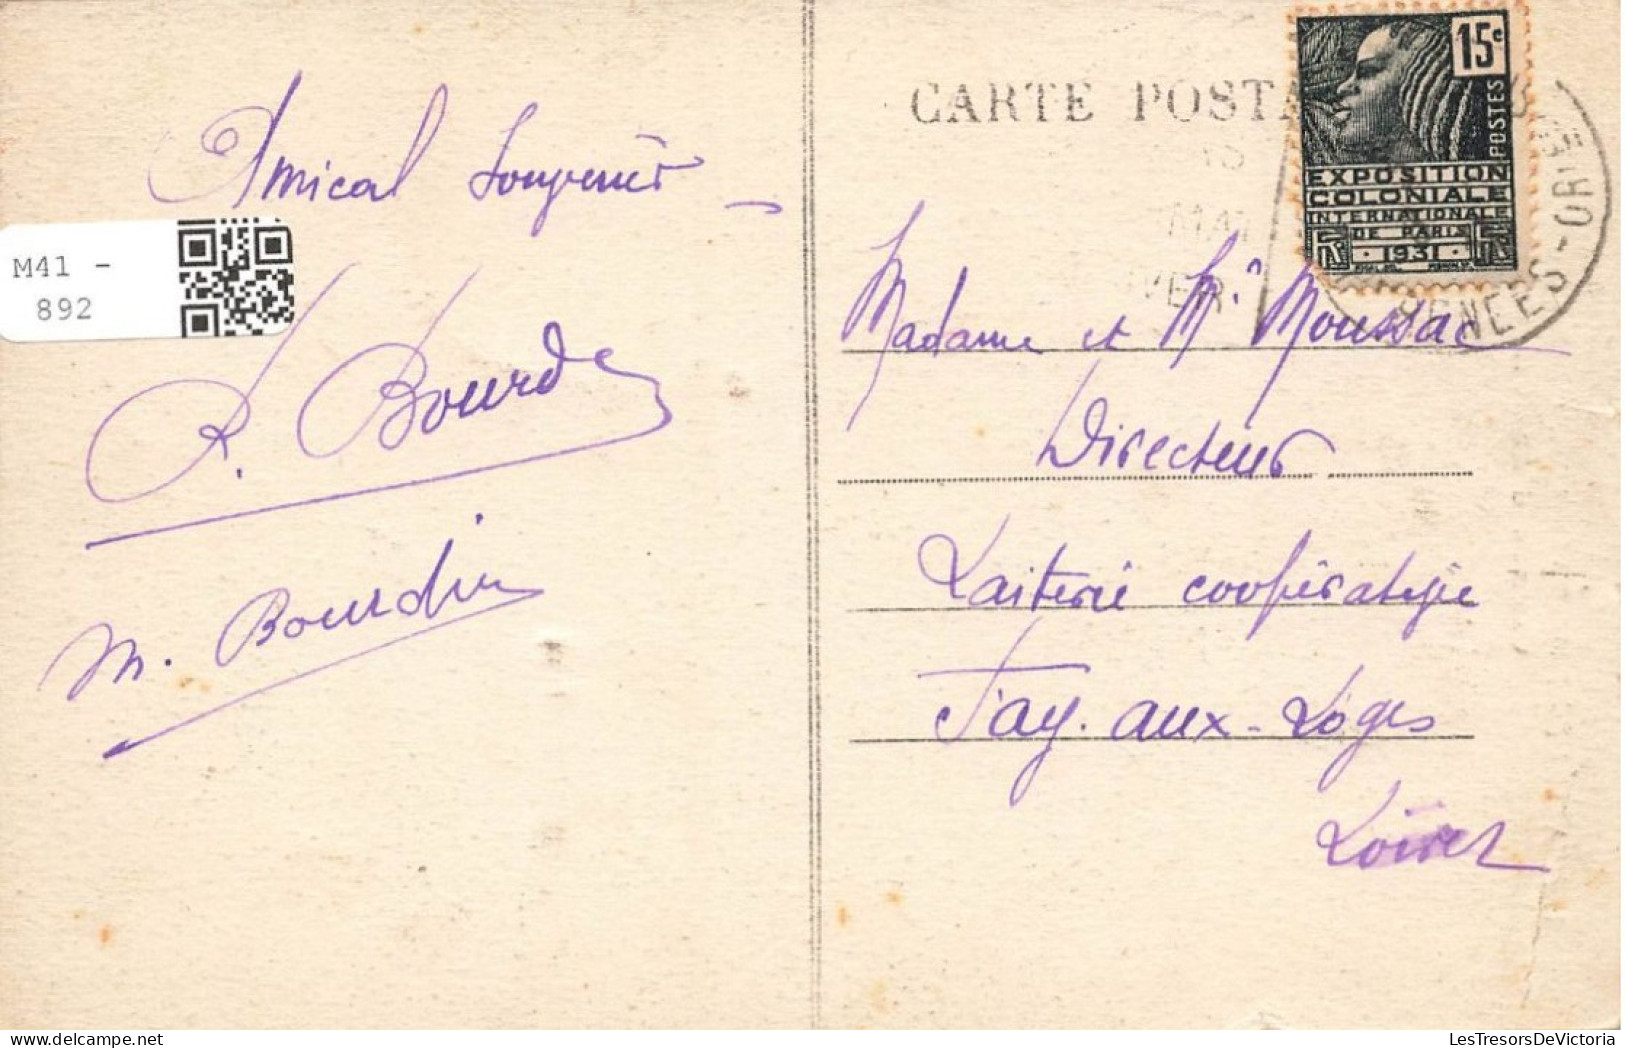 Amical Souvenir
M41 -
892
R. Bourd
M. Bourdin
CARTE POSTA
15c
POSTES
EXPOSITION
COLONIALE
INTERNATIONALE
DE PARIS
1931
ENEES-ORI
Madame et Mr Moussac
Directeur
Laiterie coopérative
Fay-aux-Loges
Loiret
LesTresorsDeVictoria